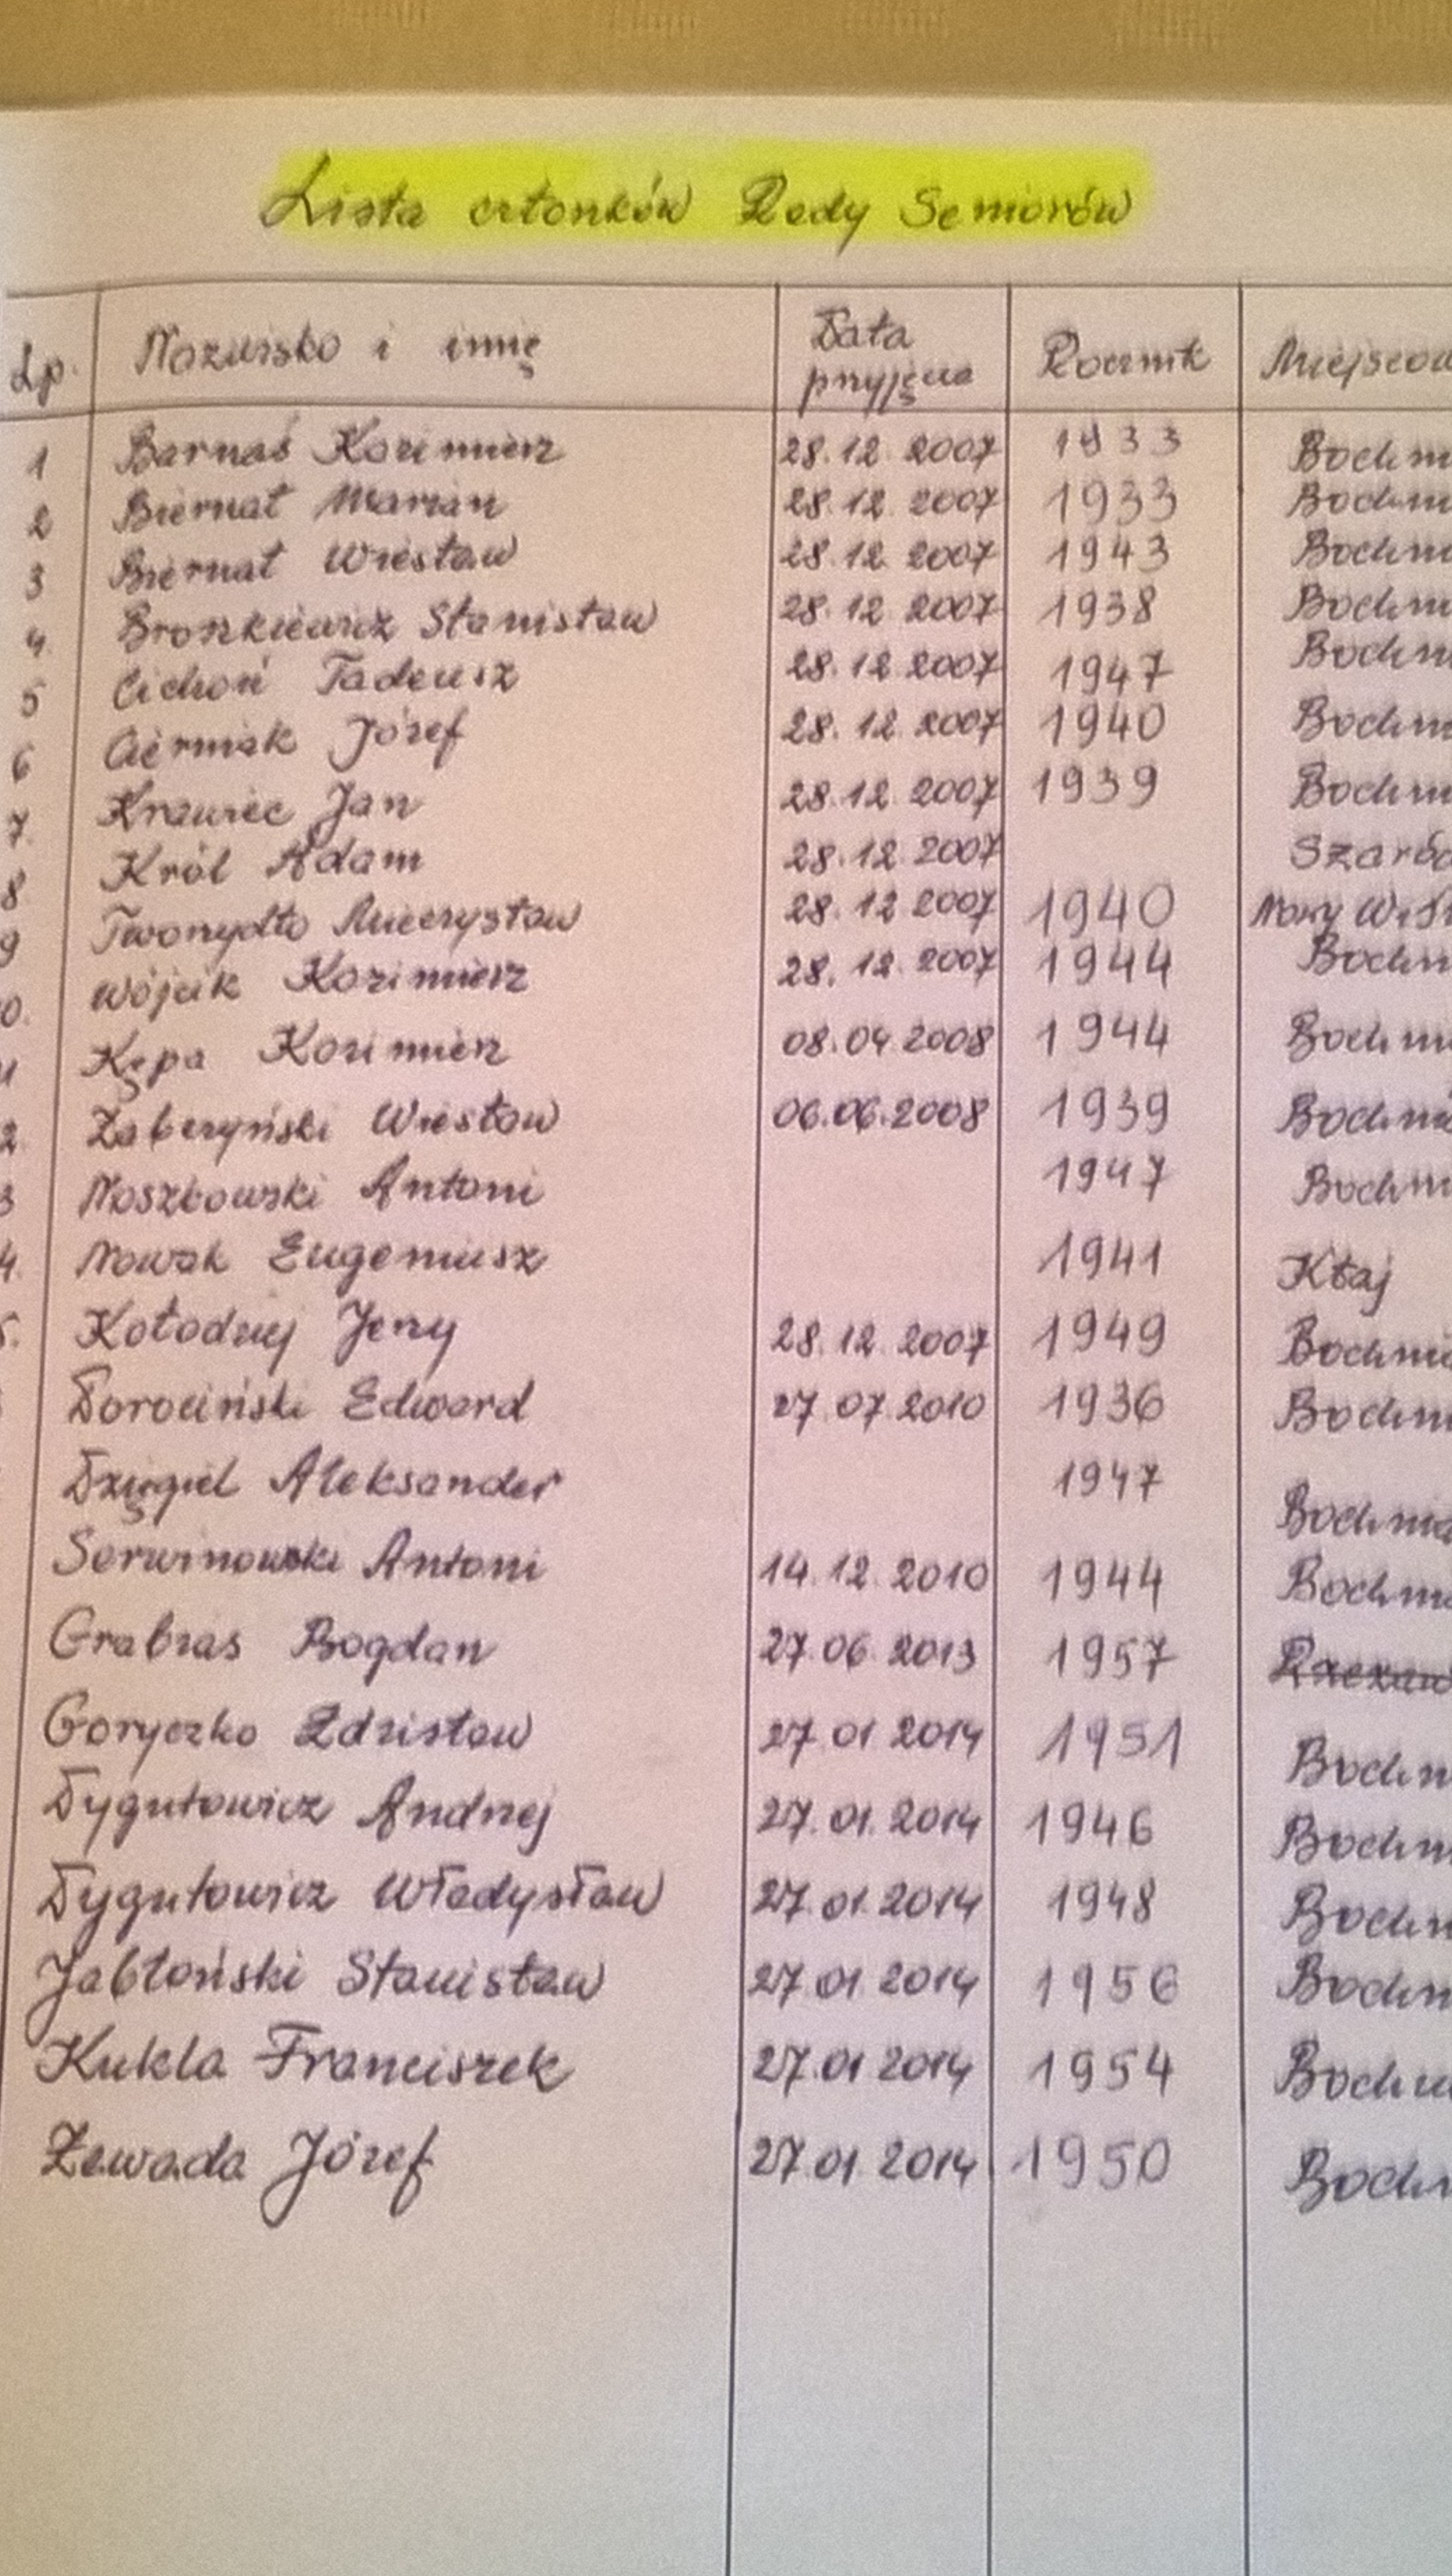 Lista członków Rady Seniorów
Lp. Nazwisko i imię Data przyjęcia Rocznik Miejscow
1 Barnaś Kazimierz 28.12.2007 1933 Bochni
2 Biernat Marian 28.12.2007 1933 Bochni
3 Biernat Wiesław 28.12.2007 1943 Bochni
4. Broszkiewicz Stanisław 28.12.2007 1938 Bochni
5 Cichoń Tadeusz 28.12.2007 1947 Bochn
6 Cierniak Józef 28.12.2007 1940 Bochni
7. Krawiec Jan 28.12.2007 1939 Bochni
8 Król Adam 28.12.2007 Szaró
9 Tworzydło Mieczysław 28.12.2007 1940 Nowy Wiś
0. Wójcik Kazimierz 28.12.2007 1944 Bochn
1 Kępa Kazimierz 08.04.2008 1944 Bochni
2. Zaberzyński Wiesław 06.06.2008 1939 Bochni
3 Noszkowski Antoni 1947 Bochni
4. Nowak Eugeniusz 1941 Kłaj
5. Kołodziej Jerzy 28.12.2007 1949 Bochni
Dorociński Edward 27.07.2010 1936 Bochni
Dzięgiel Aleksander 1947 Bochnia
Serwinowski Antoni 14.12.2010 1944 Bochni
Grabias Bogdan 27.06.2013 1957 Rzezaw
Goryczko Zdzisław 27.01.2014 1951 Bochn
Dygutowicz Andrzej 27.01.2014 1946 Bochn
Dygutowicz Władysław 27.01.2014 1948 Bochn
Jabłoński Stanisław 27.01.2014 1956 Bochn
Kukla Franciszek 27.01.2014 1954 Bochni
Zawada Józef 27.01.2014 1950 Bochn